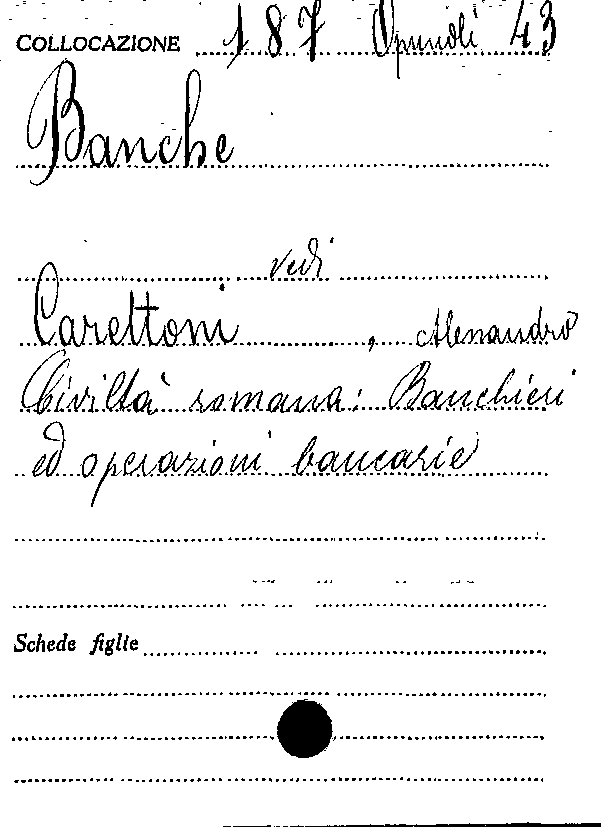 COLLOCAZIONE 187 Opuscoli 43
Banche
vedi
Carettoni, Alessandro
Civiltà romana: Banchieri
ed operazioni bancarie
Schede figlie